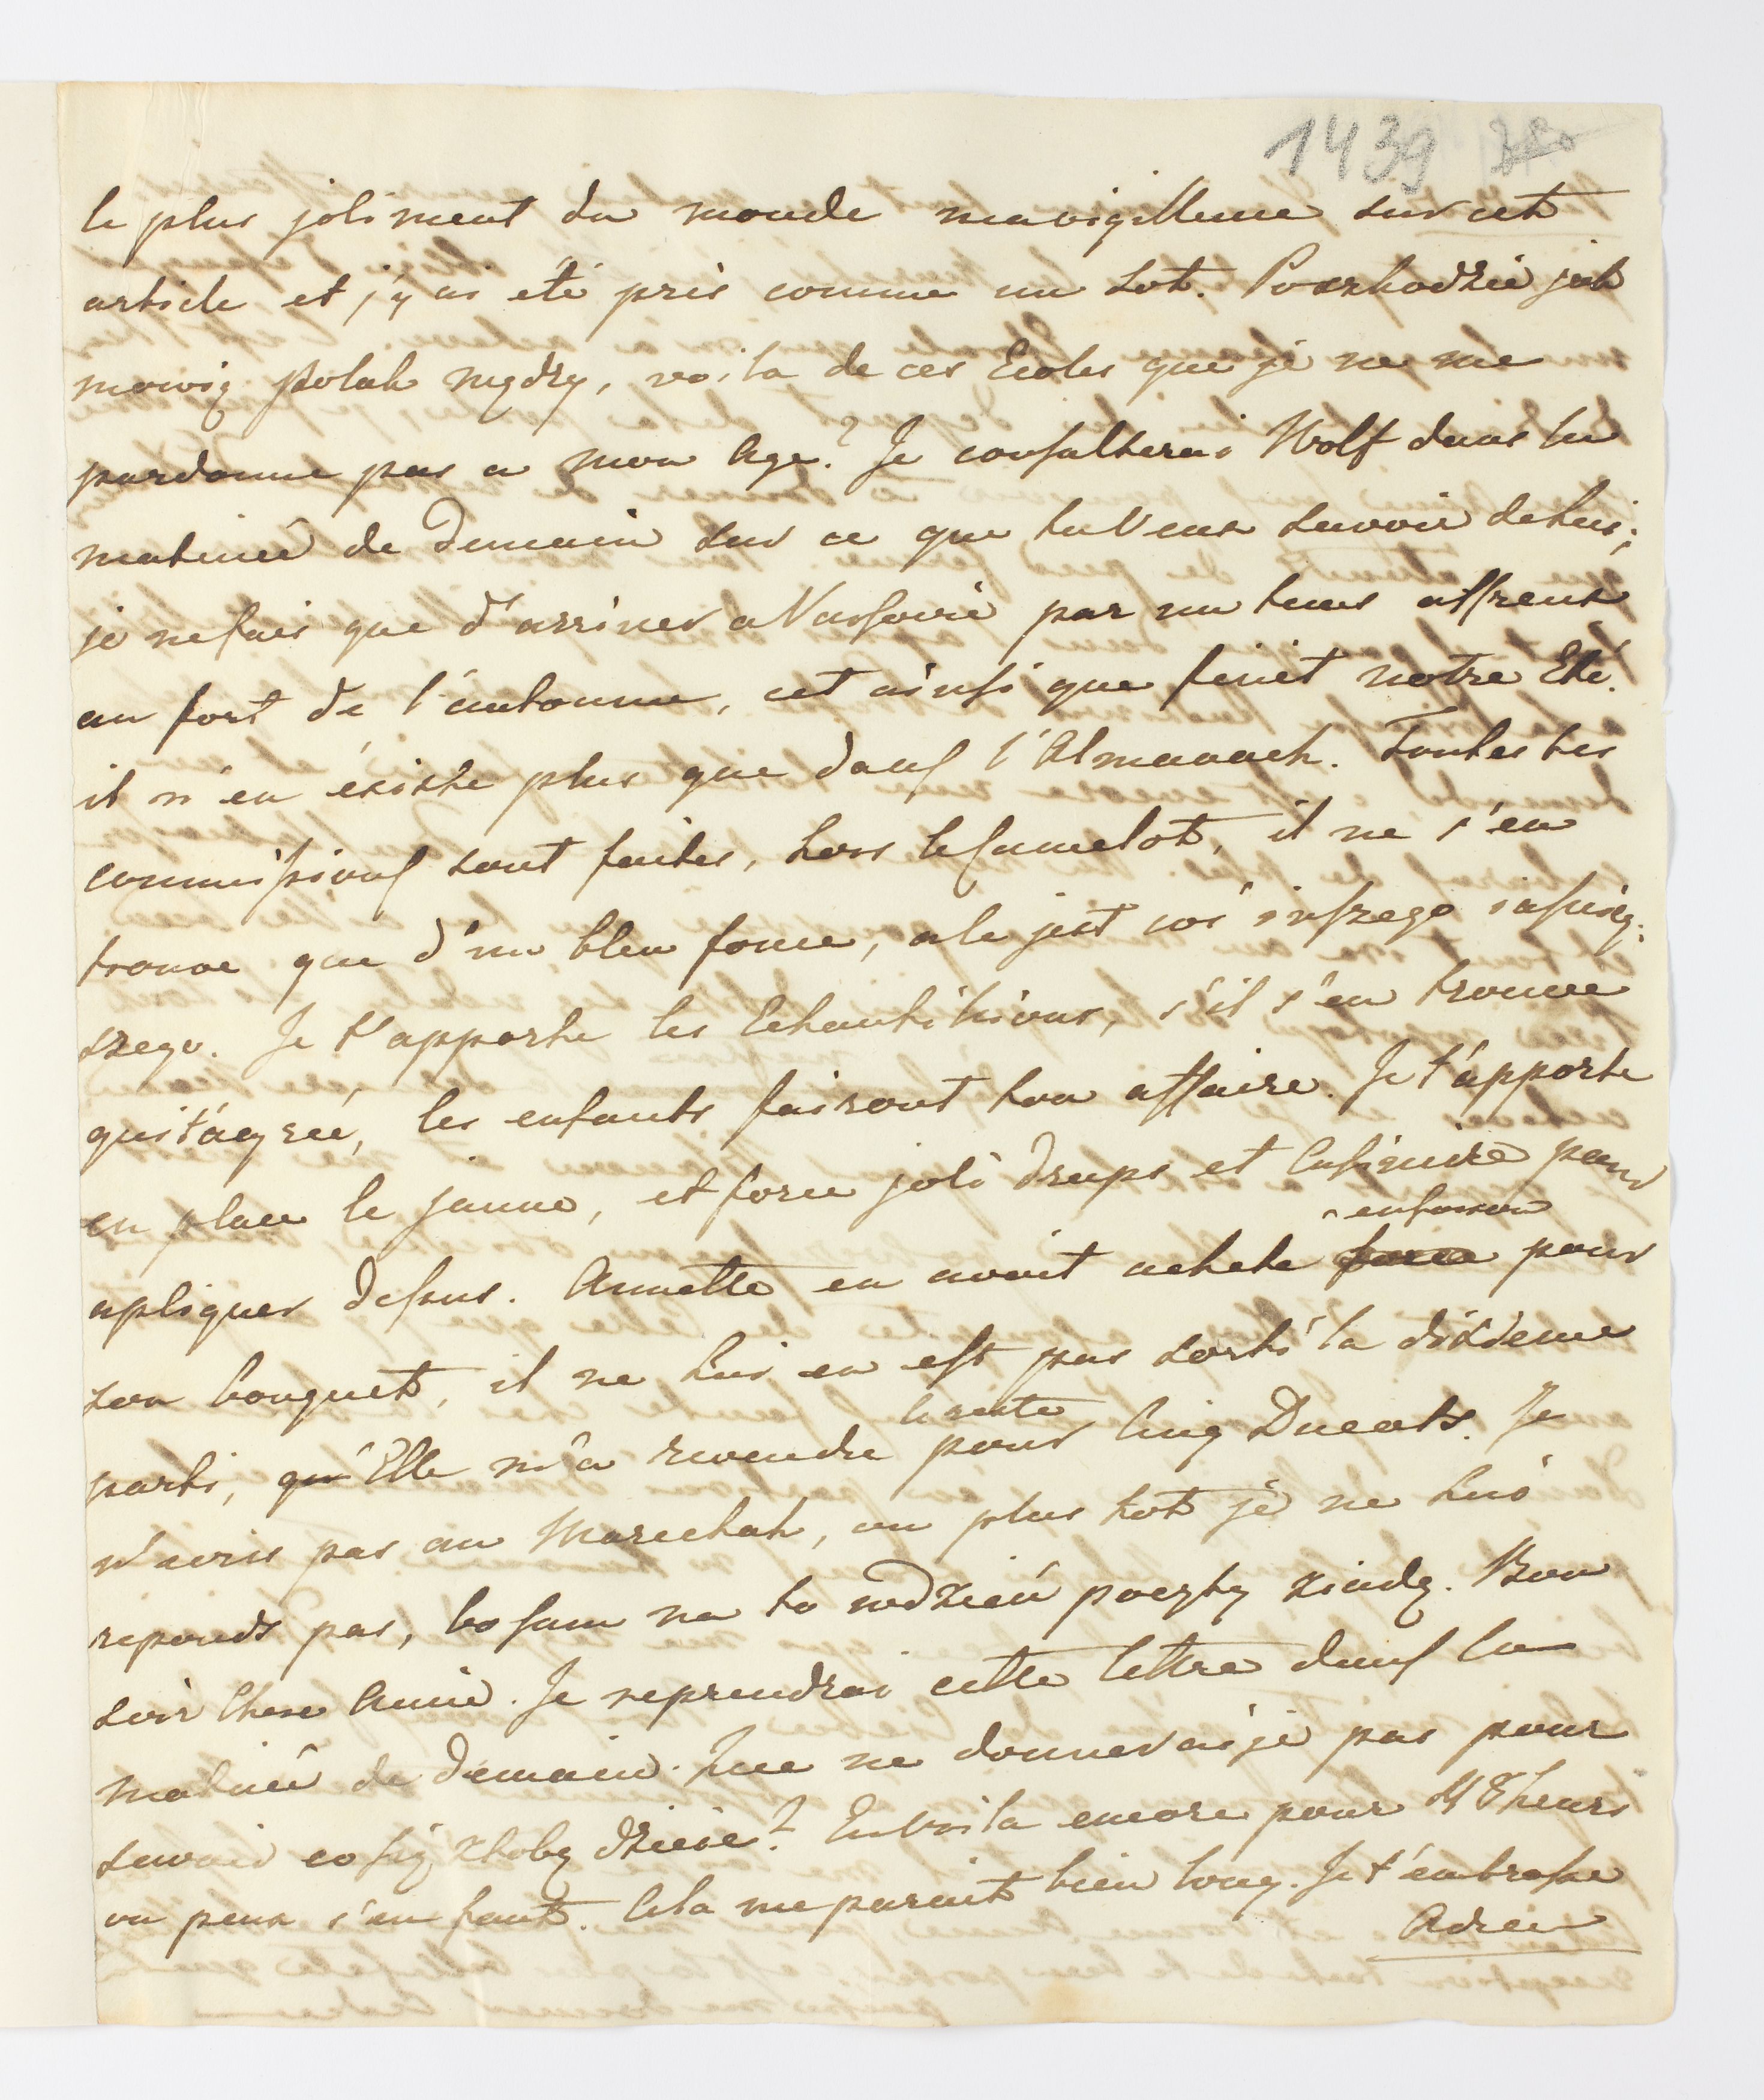 1439
le plus joliment du monde ma vigillence sur cet
article et j'y ai été pris comme un sot. Poszkodzie jak
mowią Polak mądry, voila de ces Ecoles que je ne me
pardonne pas a mon Age? Je consulterai Wolf dans la
matineé de demain sur ce que tu veux savoir de lui;
je ne fais que d'arriver a Varsovie par un tems affreux
au fort de l'automne, cet ainsi que finit notre Eté.
il n'en éxiste plus que dans l'Almanach. Toutes tes
commissions sont faites, hors le camelot, il ne s'en
trouve que d'un bleu fonce, ale jest coś inszego
szego. Je t'apporte les Echantillions, s'il s'en trouve
qui t'agrée, les enfants fairont ton affaire. Je t'apporte
en place le jaune, et force joli draps et pour
^ enfoncon
apliquer dessus. Annette en avoit acheté force pour
son bouquet, il ne lui en est pas sorti la dixieme
le reste
parti, qu'Elle m'a revendu pour Cinq Ducats. Je
n'écris pas au Marechal, ou plus tot je ne lui
reponds pas, bo sam na to wdzień poczty Ziadę. Bon
soir Chere Amie. Je reprendrai cette lettre dans la
matineé de demain. Que ne donnerai je pas pour
savoir co się Ztobą dzieie? En voila encore pour 48 heurs
ou peux s'en faut. Cela me parait bien long. Je t'embrasse
Adam